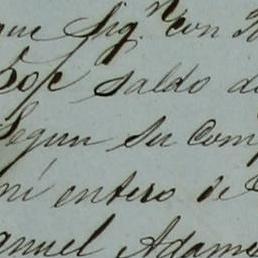 que Sig.n con
saldo de
Segun su Com
mi entero de
anuel Adame